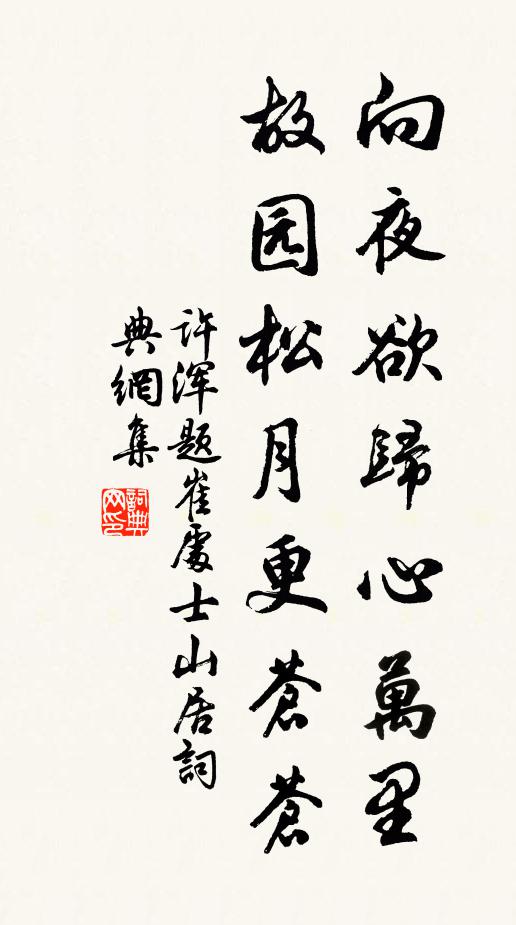 向夜欲歸心萬里
故园松月更蒼蒼
許渾題崔處士山居詞
典網集
詞典網印